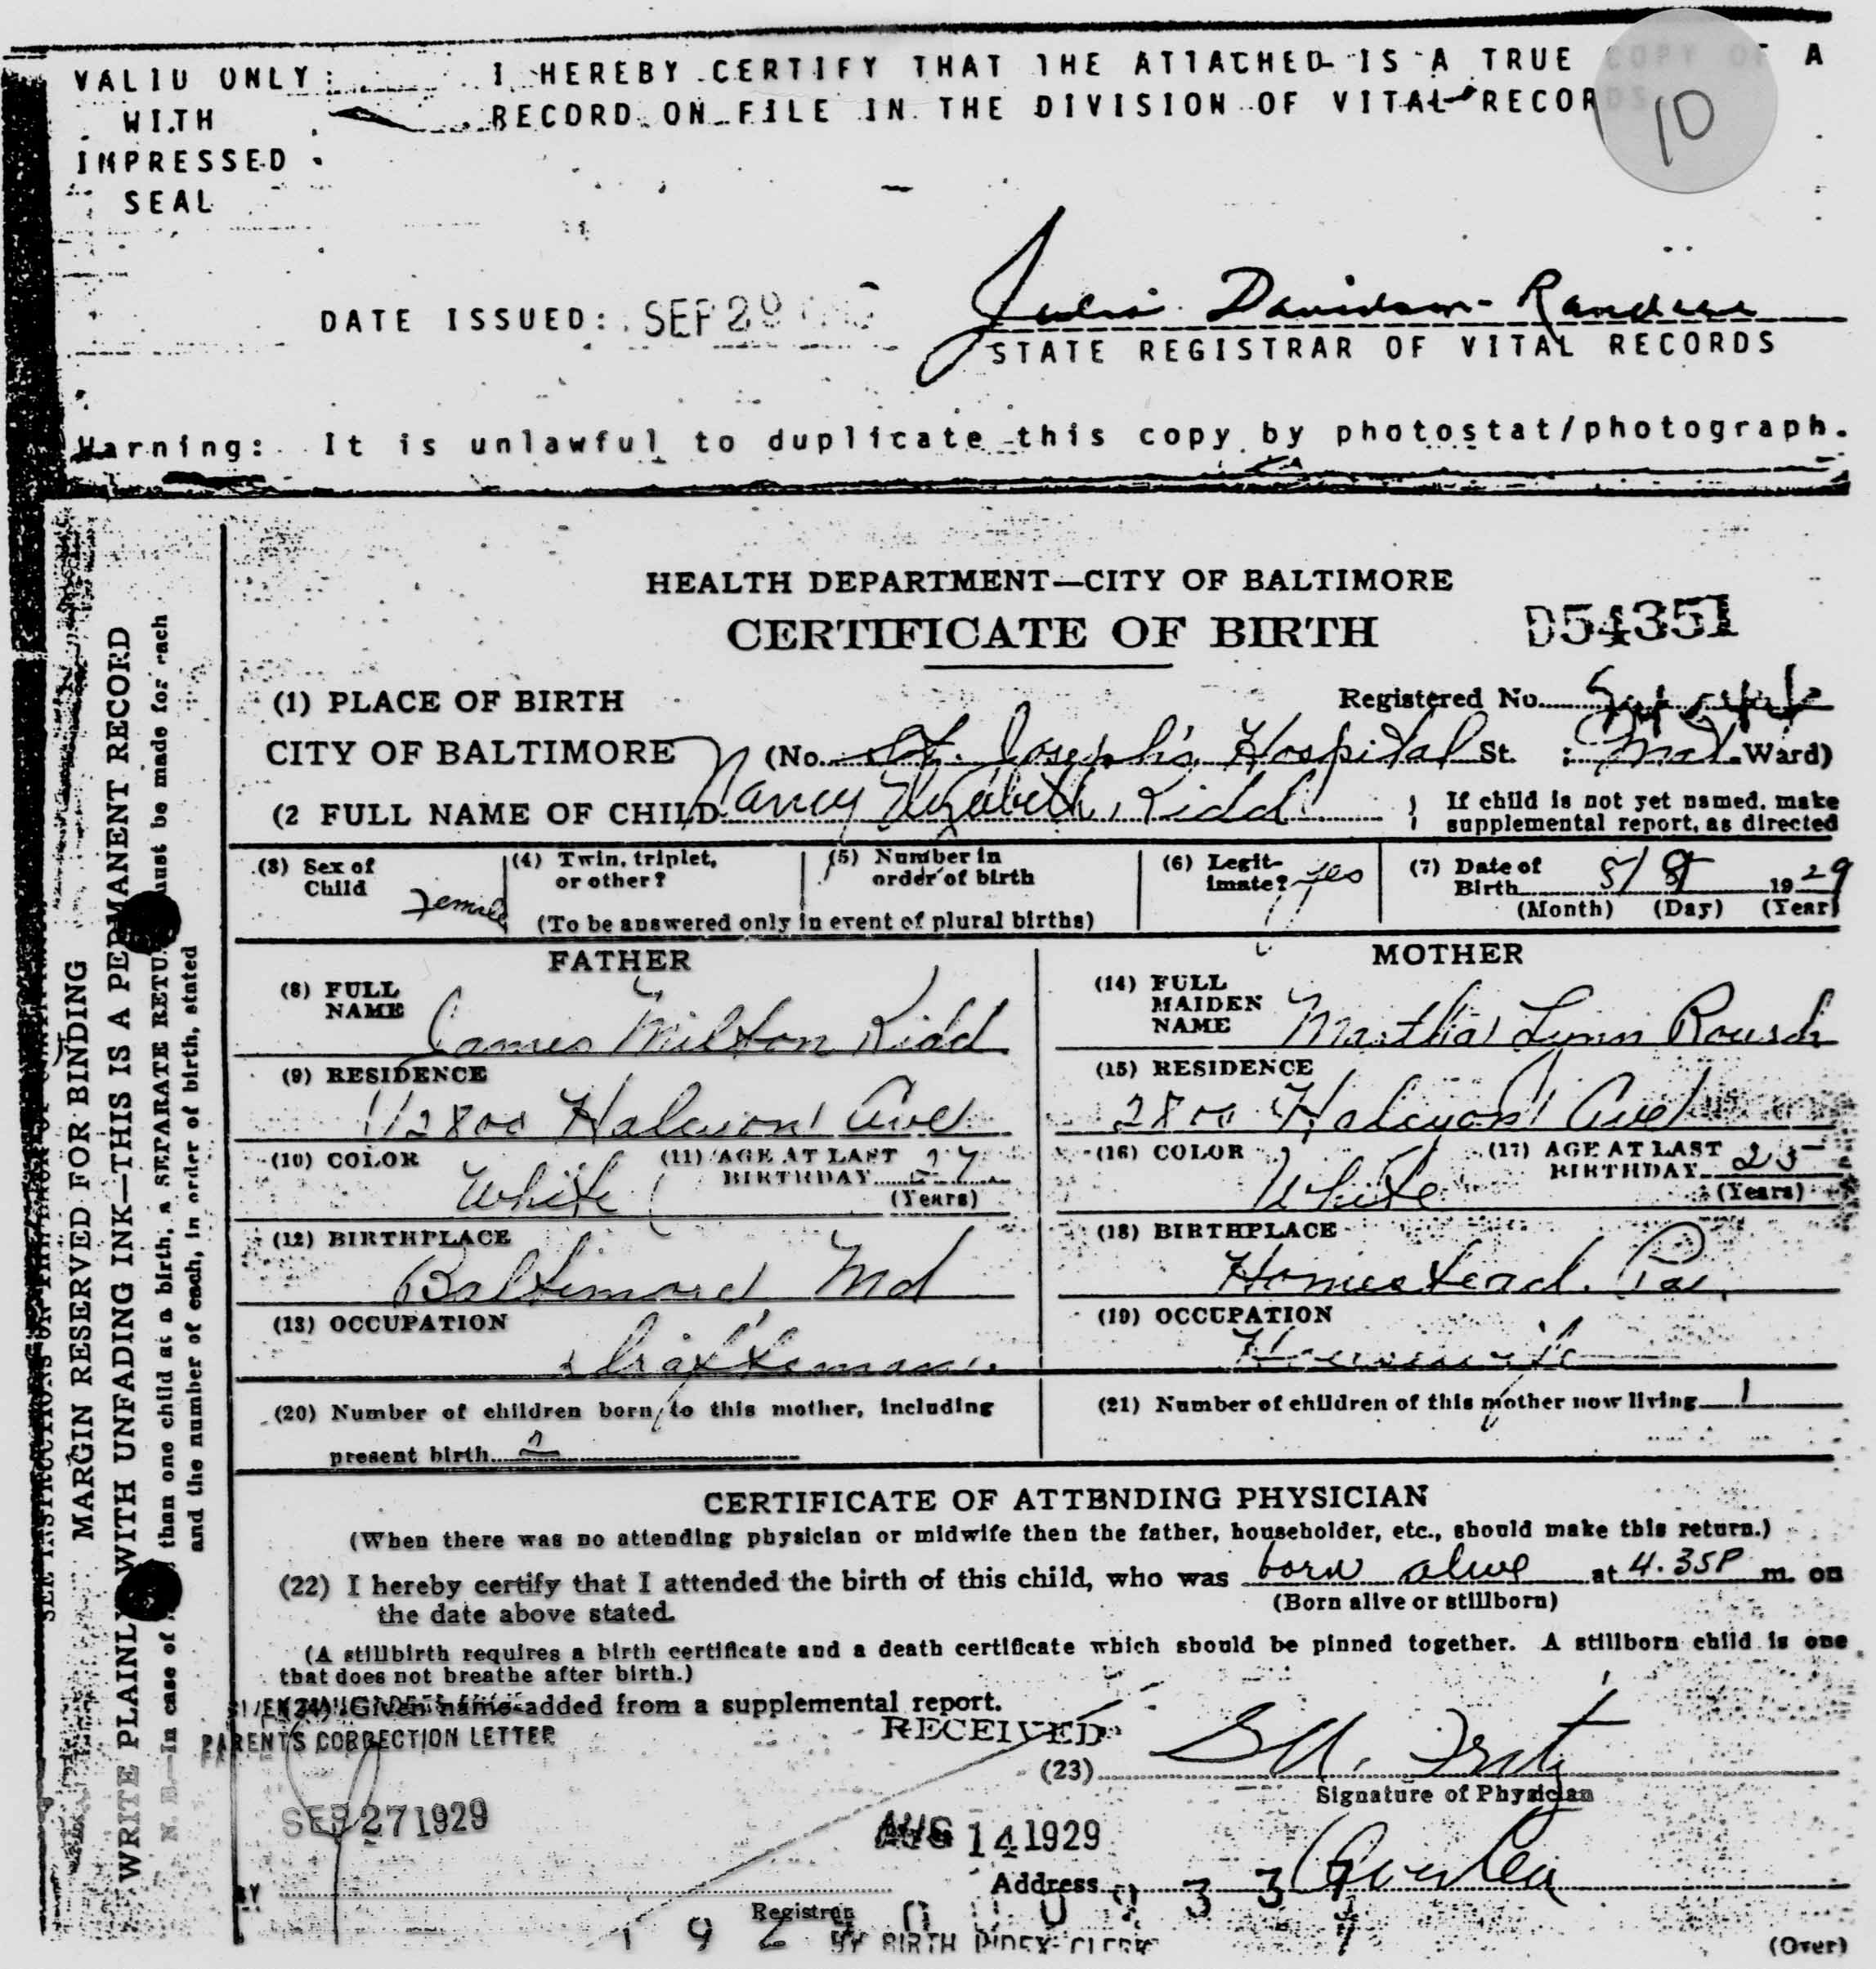 VALID ONLY: I HEREBY CERTIFY THAT THE ATTACHED IS A TRUE COPY OF A
WITH RECORD ON FILE IN THE DIVISION OF VITAL RECORDS
IMPRESSED
SEAL
10
DATE ISSUED: SEP 29
Julia Davidson-Randall
STATE REGISTRAR OF VITAL RECORDS
Warning: It is unlawful to duplicate this copy by photostat/photograph.
MARGIN RESERVED FOR BINDING
WRITE PLAINLY WITH UNFADING INK—THIS IS A PERMANENT RECORD
N. B.—In case of than one child at a birth, a SEPARATE RETU must be made for each
and the number of each, in order of birth, stated
HEALTH DEPARTMENT—CITY OF BALTIMORE
CERTIFICATE OF BIRTH D54351
(1) PLACE OF BIRTH Registered No.
CITY OF BALTIMORE (No. St. Joseph's Hospital St. : Ward)
(2 FULL NAME OF CHILD Nancy Elizabeth Kidd
If child is not yet named, make
supplemental report, as directed
(3) Sex of Child Female
(4) Twin, triplet, or other?
(5) Number in order of birth
(To be answered only in event of plural births)
(6) Legitimate? yes
(7) Date of Birth 8/ 8 1929
(Month) (Day) (Year)
FATHER
(8) FULL NAME James Milton Kidd
(9) RESIDENCE
2800 Halcyon Ave
(10) COLOR White
(11) AGE AT LAST BIRTHDAY 27
(Years)
(12) BIRTHPLACE
Baltimore Md
(13) OCCUPATION
Draftsman
MOTHER
(14) FULL MAIDEN NAME Martha Lynn Roush
(15) RESIDENCE
2800 Halcyon Ave
(16) COLOR White
(17) AGE AT LAST BIRTHDAY 25
(Years)
(18) BIRTHPLACE
Homestead. Pa.
(19) OCCUPATION
Housewife
(20) Number of children born to this mother, including
present birth
(21) Number of children of this mother now living 1
CERTIFICATE OF ATTENDING PHYSICIAN
(When there was no attending physician or midwife then the father, householder, etc., should make this return.)
(22) I hereby certify that I attended the birth of this child, who was born alive at 4.35P m. on
the date above stated. (Born alive or stillborn)
(A stillbirth requires a birth certificate and a death certificate which should be pinned together. A stillborn child is one
that does not breathe after birth.)
Given name added from a supplemental report.
PARENTS CORRECTION LETTER
RECEIVED
(23)
Signature of Physician
SEP 27 1929
AUG 14 1929
Address
BY
Registrar
BY BIRTH INDEX CLERK
(Over)